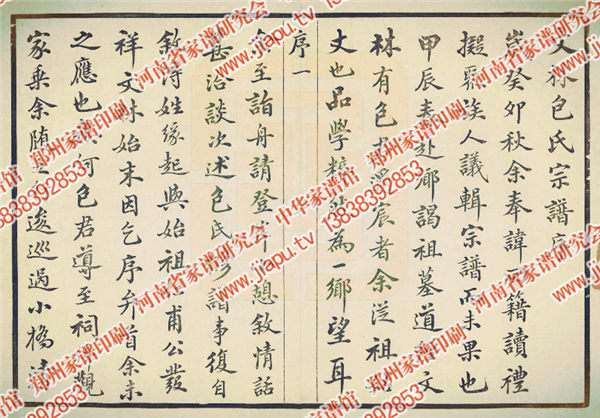 文林包氏宗譜序
歲癸卯秋余奉諱 籍讀禮
擬聚族人議輯宗譜而未果也
甲辰春赴廊謁祖墓道 文
林有包 宸者余從祖
丈也品學粹 為一鄉望耳
序一
余至詣舟請登 憩敘情話
甚洽談次述包氏 譜事復自
敘得姓緣起與始祖 甫公發
祥文林始末因乞序弁首余未
之應也 何包君導至祠 觀
家乘余随 逡巡過小橋
河南省家谱研究会
郑州家谱印刷
中华家谱馆
河南家谱印刷
郑州家谱馆
www.jiapu.tv
13838392853